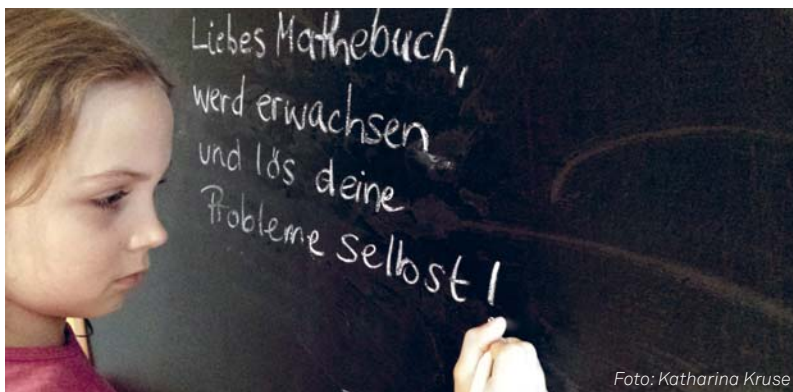 Liebes Mathebuch,
werd erwachsen
und lös deine
Probleme selbst!
Foto: Katharina Kruse